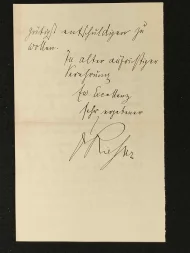 gütigst entschuldigen zu
wollen.
In alter aufrichtiger
Verehrung
Ew. Excellenz
sehr ergebener